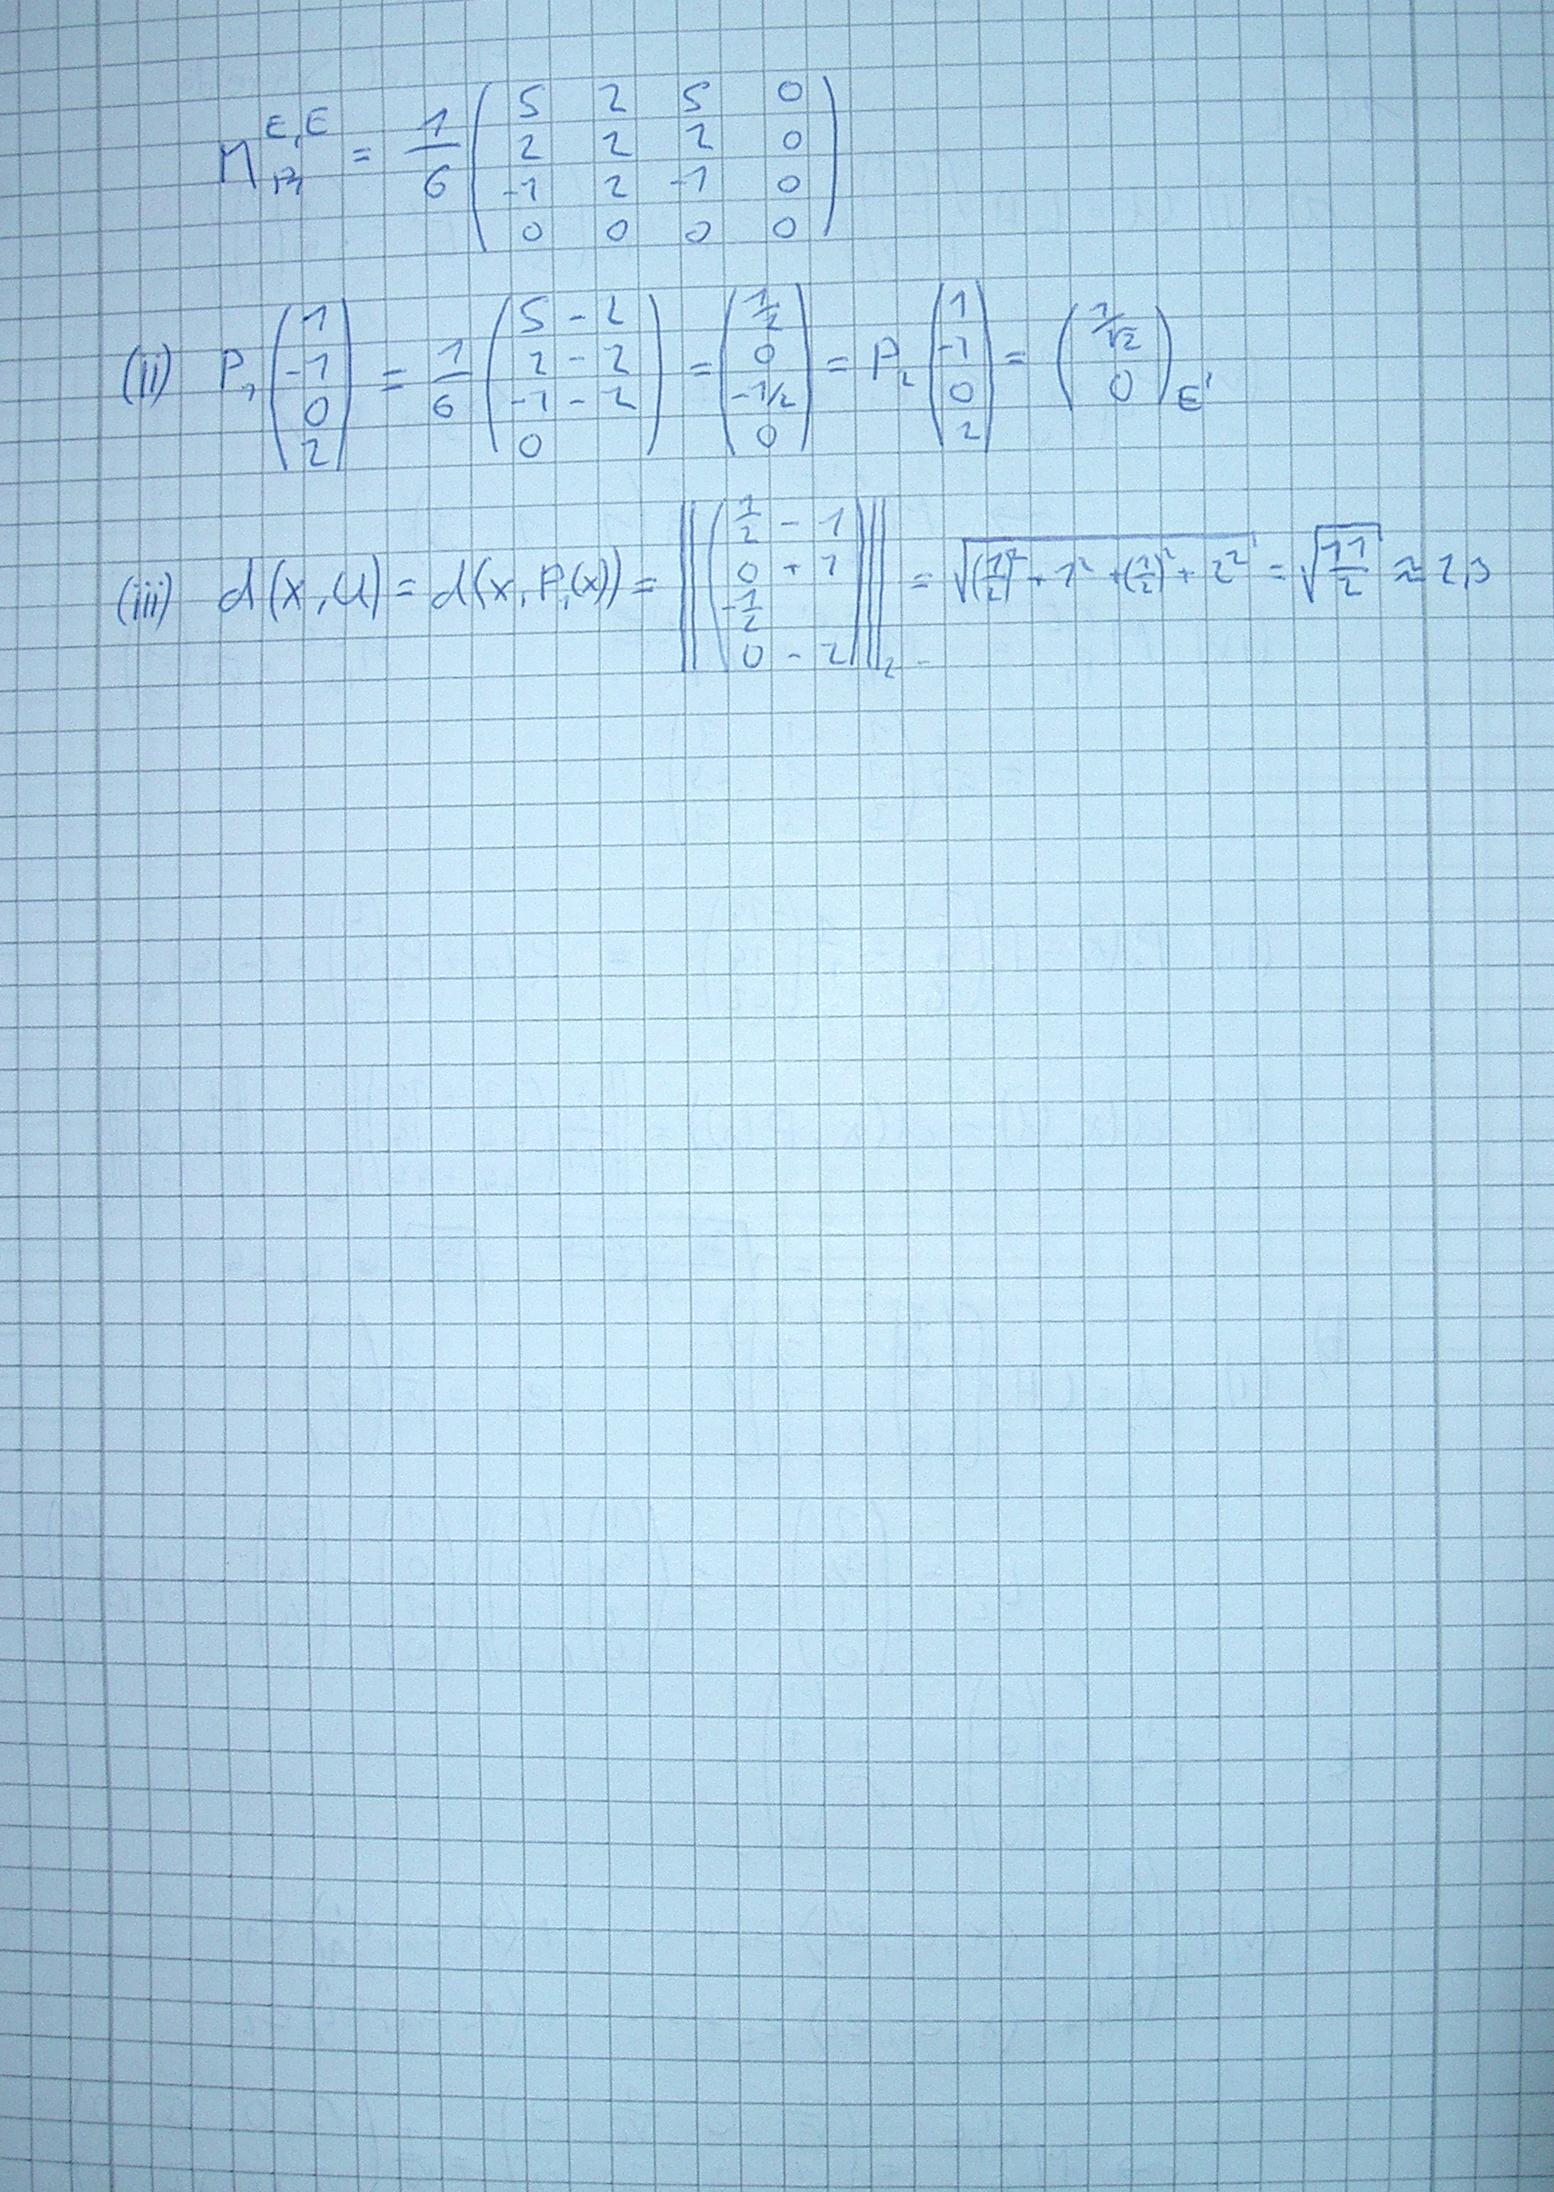 M_{P₁}^{E,E} = 1/6 (5 2 5 0; 2 2 2 0; -1 2 -1 0; 0 0 0 0)
(ii) P₁ (1; -1; 0; 2) = 1/6 (5 - 2; 2 - 2; -1 - 2; 0) = (1/2; 0; -1/2; 0) = P₂ (1; -1; 0; 2) = (1/√2; 0)_{E'}
(iii) d(x, U) = d(x, P₁(x)) = ||(1/2 - 1; 0 + 1; -1/2; 0 - 2)||₂ = √((1/2)² + 1² + (1/2)² + 2²) = √(11/2) ≈ 2,3